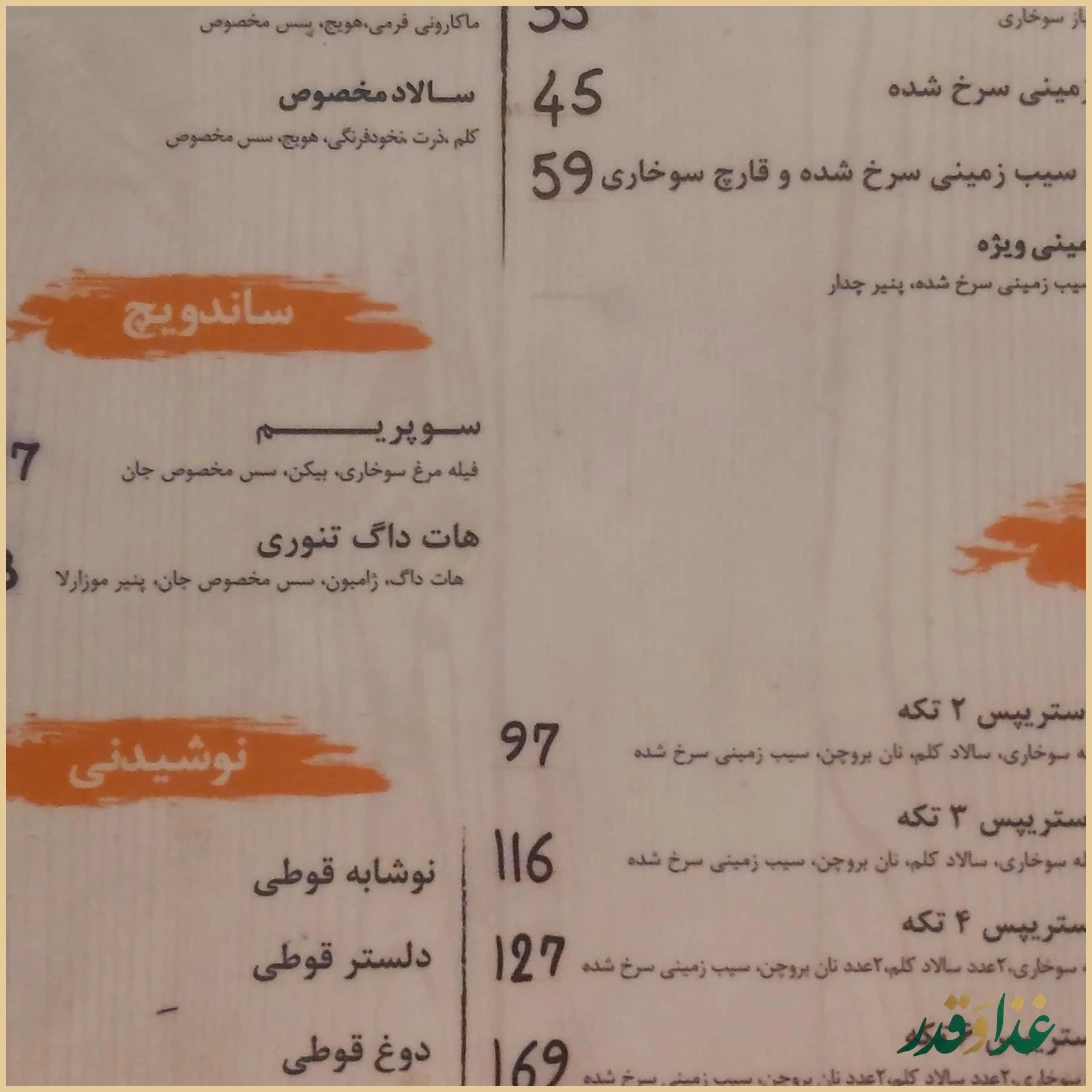 سوخاری 55
سرخ شده 45
سیب زمینی سرخ شده و قارچ سوخاری 59
ویژه
سیب زمینی سرخ شده، پنیر چدار
استریپس ۲ تکه 97
سوخاری، سالاد کلم، نان بروچن، سیب زمینی سرخ شده
استریپس ۳ تکه 116
سوخاری، سالاد کلم، نان بروچن، سیب زمینی سرخ شده
استریپس ۴ تکه 127
سوخاری،۲عدد سالاد کلم،۲عدد نان بروچن، سیب زمینی سرخ شده
تکه 169
سوخاری،۲عدد سالاد کلم،۲عدد نان بروچن، سیب زمینی سرخ شده
ماکارونی فرمی،هویج، سس مخصوص
سالاد مخصوص
کلم ،ذرت ،نخودفرنگی، هویج، سس مخصوص
ساندویچ
سوپریم
فیله مرغ سوخاری، بیکن، سس مخصوص جان
هات داگ تنوری
هات داگ، ژامبون، سس مخصوص جان، پنیر موزارلا
نوشیدنی
نوشابه قوطی
دلستر قوطی
دوغ قوطی
غذا و قدر